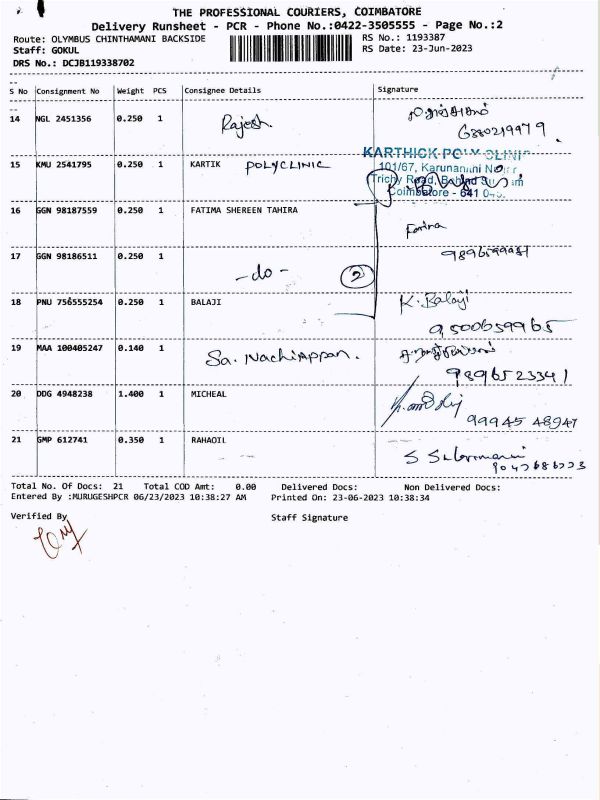 THE PROFESSIONAL COURIERS, COIMBATORE
Delivery Runsheet - PCR - Phone No.:0422-3505555 - Page No.:2
Route: OLYMBUS CHINTHAMANI BACKSIDE RS No.: 1193387
Staff: GOKUL RS Date: 23-Jun-2023
DRS No.: DCJB119338702
S No Consignment No Weight PCS Consignee Details Signature
14 NGL 2451356 0.250 1 Rajesh.
6380219979
KARTHICK POLY CLINIC
15 KMU 2541795 0.250 1 KARTIK POLYCLINIC 101/67, Karunanini
Trichy Road,
Coimbatore - 641
16 GGN 98187559 0.250 1 FATIMA SHEREEN TAHIRA
Farina
17 GGN 98186511 0.250 1 -do- 2
18 PNU 756555254 0.250 1 BALAJI K. Balaji
9500659965
19 MAA 100405247 0.140 1 Sa. Nachiappan.
9896523341
20 DDG 4948238 1.400 1 MICHEAL
99945 48947
21 GMP 612741 0.350 1 RAHAOIL
Total No. Of Docs: 21 Total COD Amt: 0.00 Delivered Docs: Non Delivered Docs:
Entered By :MURUGESHPCR 06/23/2023 10:38:27 AM Printed On: 23-06-2023 10:38:34
Verified By Staff Signature